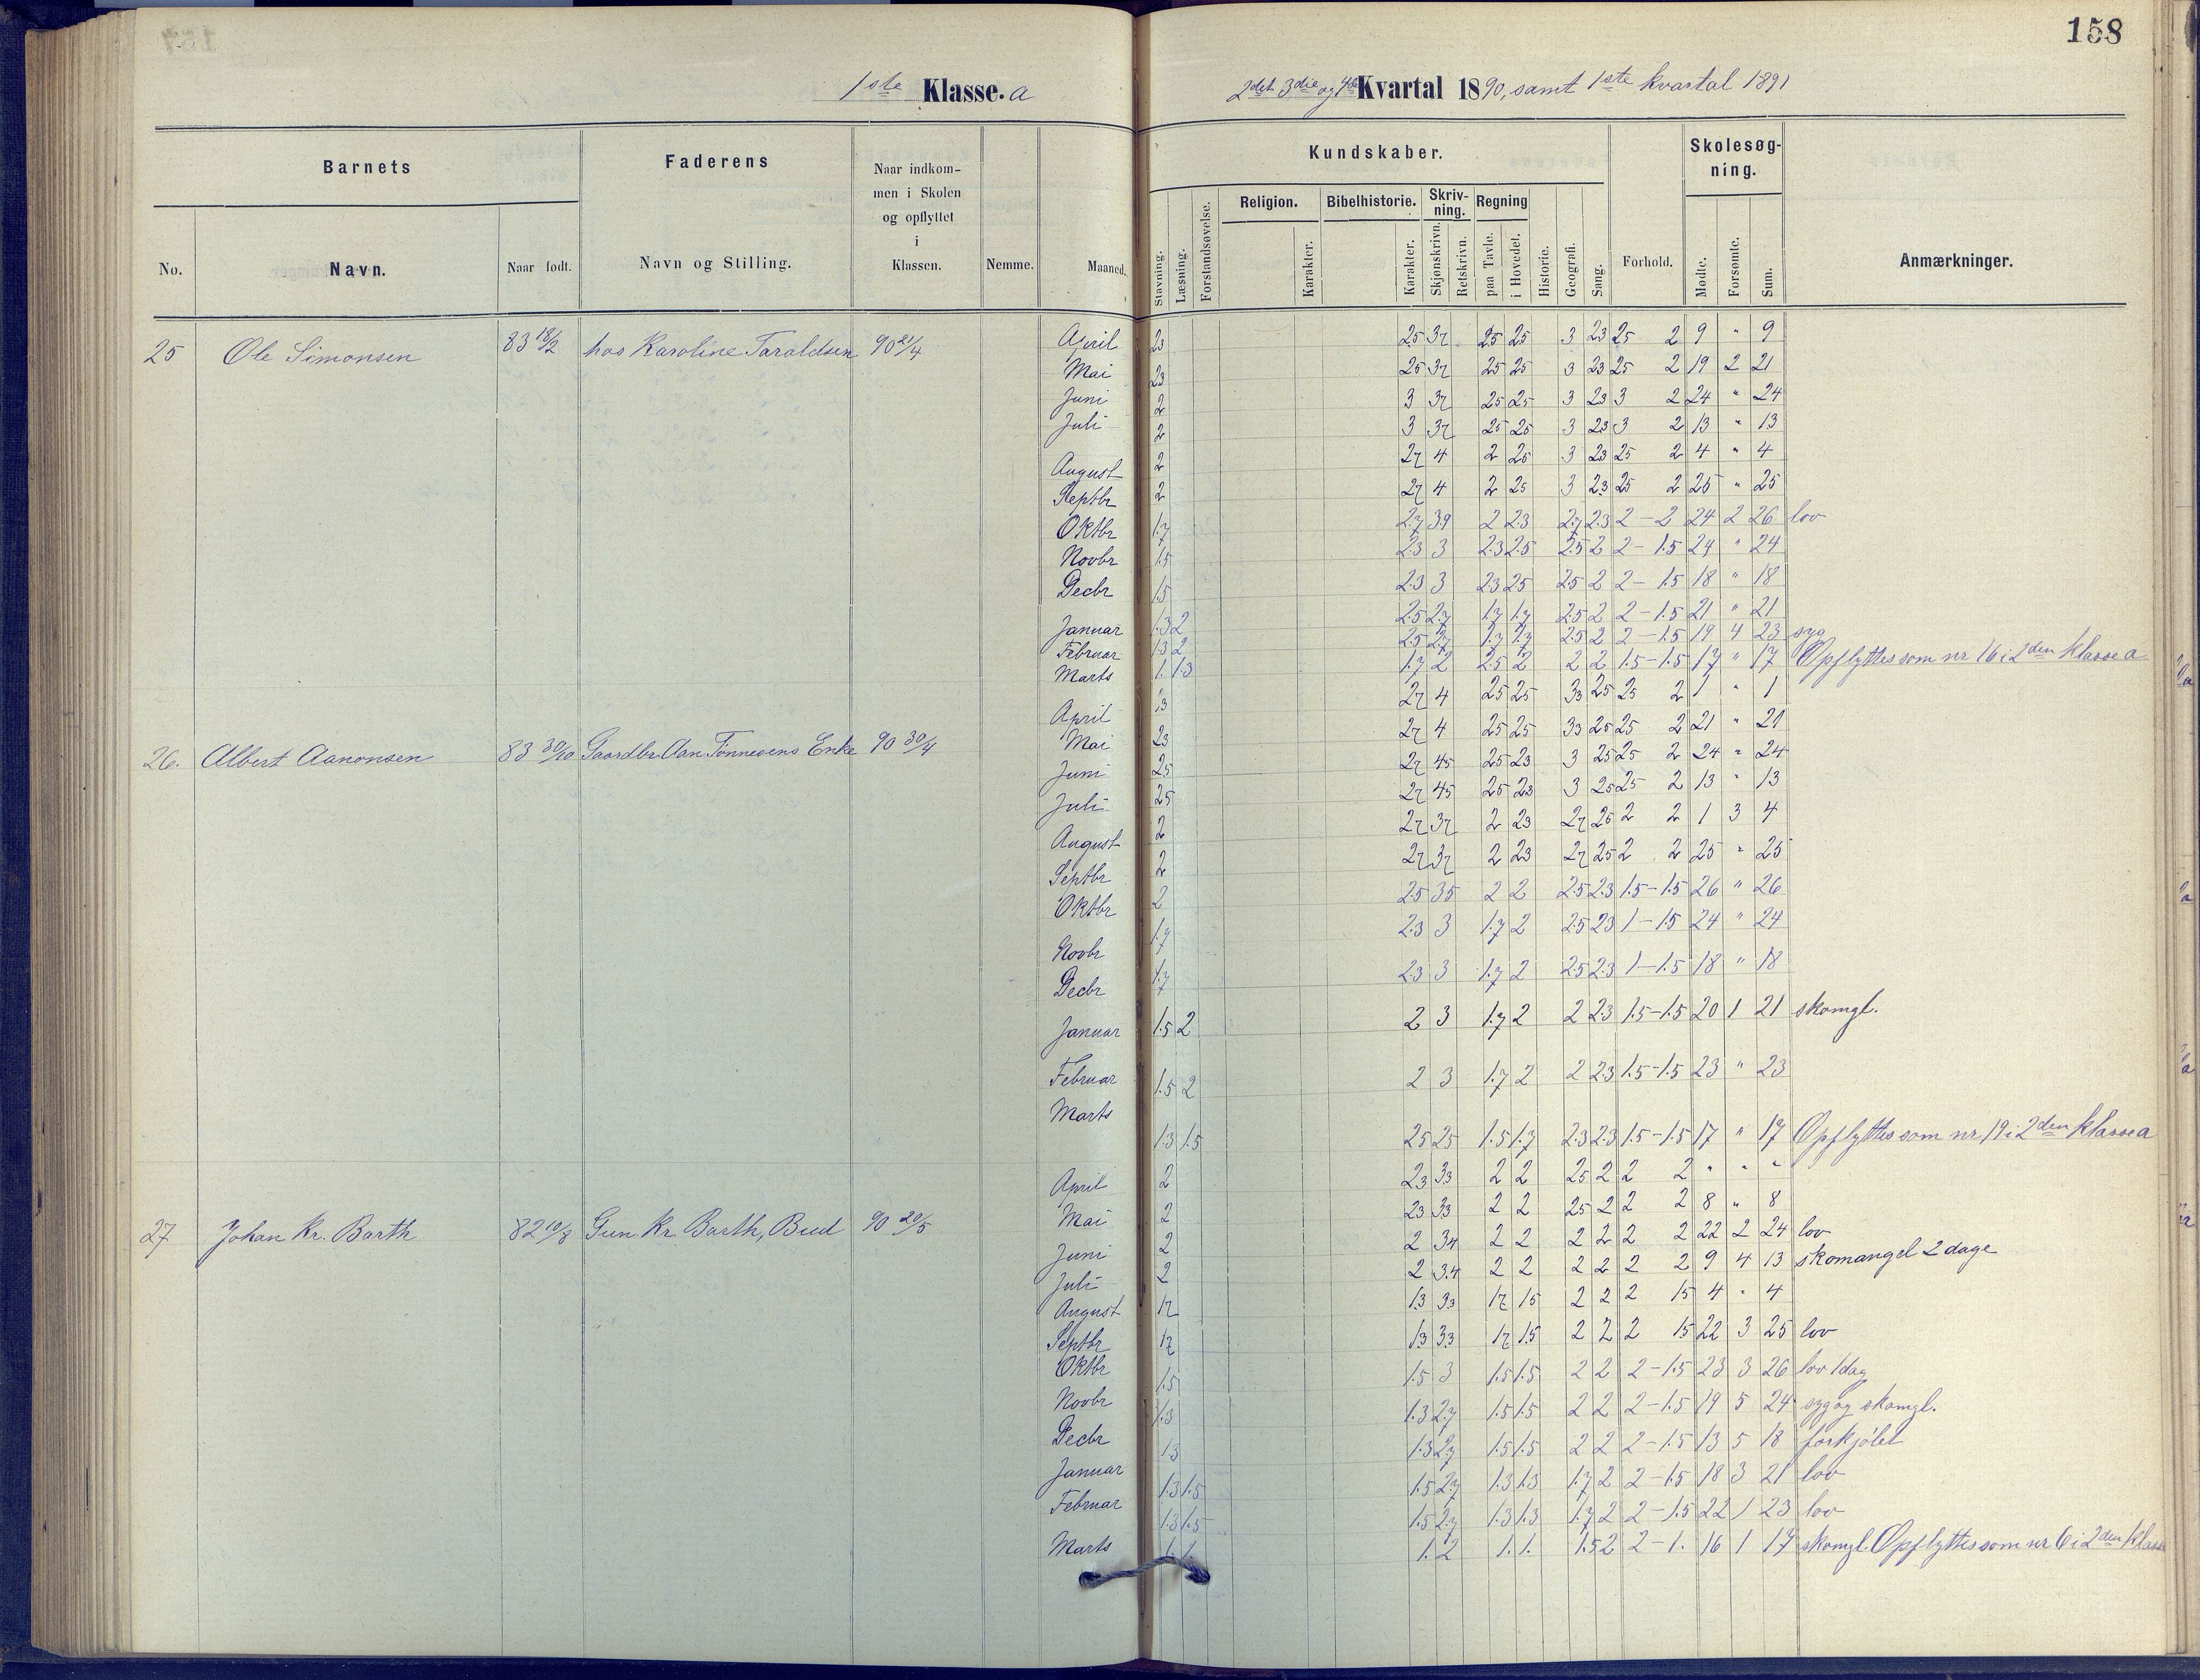 158
1ste Klasse. a
2det 3die og 4de Kvartal 1890, samt 1ste kvartal 1891
Barnets
Faderens
Naar indkom-
men i Skolen
og opflyttet
i
Klassen.
No.
Navn.
Naar født.
Navn og Stilling.
Nemme.
Maaned.
Kundskaber.
Skolesøg-
ning.
Stavning.
Læsning.
Forstandsøvelse.
Religion.
Karakter.
Bibelhistorie.
Karakter.
Skriv-
ning.
Skjønskrivn.
Retskrivn.
Regning
paa Tavle.
i Hovedet.
Historie.
Geografi.
Sang.
Forhold.
Mødte.
Forsømte.
Sum.
Anmærkninger.
25 Ole Simonsen 83 18/2 hos Karoline Taraldsen 90 21/4
April 23 25 37 25 25 3 23 25 2 9 " 9
Mai 23 25 37 25 25 3 23 25 2 19 2 21
Juni 2 3 37 25 25 3 23 3 2 24 " 24
Juli 2 3 37 25 25 3 23 3 2 13 " 13
August 2 27 4 2 25 3 23 25 2 4 " 4
Septbr 2 27 4 2 25 3 23 25 2 25 " 25
Oktbr 1.7 2.7 3.9 2 2.3 2.7 2.3 2 - 2 24 2 26 lov
Novbr 1.5 2.3 3 2.3 2.5 2.5 2 2 - 1.5 24 " 24
Decbr 1.5 2.3 3 2.3 2.5 2.5 2 2 - 1.5 18 " 18
Januar 1.3 2 2.5 2.7 1.7 1.7 2.5 2 2 - 1.5 21 " 21
Februar 1.3 2 2.5 2.7 1.7 1.7 2.5 2 2 - 1.5 19 4 23 syg
Marts 1. 1.3 1.7 2 2.5 2 2 2 1.5 - 1.5 17 " 17 Opflyttes som nr 16 i 2den klasse a
26. Albert Aanonsen 83 30/10 Gaardbr. Aan Tønnesens Enke 90 30/4
April 23 27 4 25 25 33 25 25 2 1 " 1
Mai 23 27 4 25 25 33 25 25 2 21 " 21
Juni 25 27 45 25 23 3 25 25 2 24 " 24
Juli 25 27 45 25 23 3 25 25 2 13 " 13
August 2 27 37 2 23 27 25 2 2 1 3 4
Septbr 2 27 37 2 23 27 25 2 2 25 " 25
Oktbr 2 2.5 3.5 2 2 2.5 2.3 1.5 - 1.5 26 " 26
Novbr 1.7 2.3 3 1.7 2 2.5 2.3 1 - 1.5 24 " 24
Decbr 1.7 2.3 3 1.7 2 2.5 2.3 1 - 1.5 18 " 18
Januar 1.5 2 2 3 1.7 2 2 2.3 1.5 - 1.5 20 1 21 skomgl.
Februar 1.5 2 2 3 1.7 2 2 2.3 1.5 - 1.5 23 " 23
Marts 1.3 1.5 2.5 2.5 1.5 1.7 2.3 2.3 1.5 - 1.5 17 " 17 Opflyttes som nr 19 i 2den klasse a
27 Johan Kr. Barth 82 10/8 Gun Kr Barth, Bud 90 20/5
April 2 23 33 2 2 25 2 2 2 " " "
Mai 2 23 33 2 2 25 2 2 2 8 " 8
Juni 2 2 34 2 2 2 2 2 2 22 2 24 lov
Juli 2 2 3.4 2 2 2 2 2 2 9 4 13 skomangel 2 dage
August 17 13 33 17 15 2 2 2 15 4 " 4
Septbr 17 13 33 17 1.5 2 2 2 15 22 3 25 lov
Oktbr 1.5 1.5 3 1.5 1.5 2 2 2 - 1.5 23 3 26 lov 1 dag
Novbr 1.3 1.3 2.7 1.5 1.5 2 2 2 - 1.5 19 5 24 syg og skomgl.
Decbr 1.3 1.3 2.7 1.5 1.5 2 2 2 - 1.5 13 5 18 forkjølet
Januar 1.3 1.5 1.5 2.7 1.3 1.3 1.7 2 2 - 1.5 18 3 21 lov
Februar 1.3 1.5 1.5 2.7 1.3 1.3 1.7 2 2 - 1.5 22 1 23 lov
Marts 1. 1. 1. 2 1. 1. 1.5 2 2 - 1. 16 1 17 skomgl. Opflyttes som nr 6 i 2den klasse